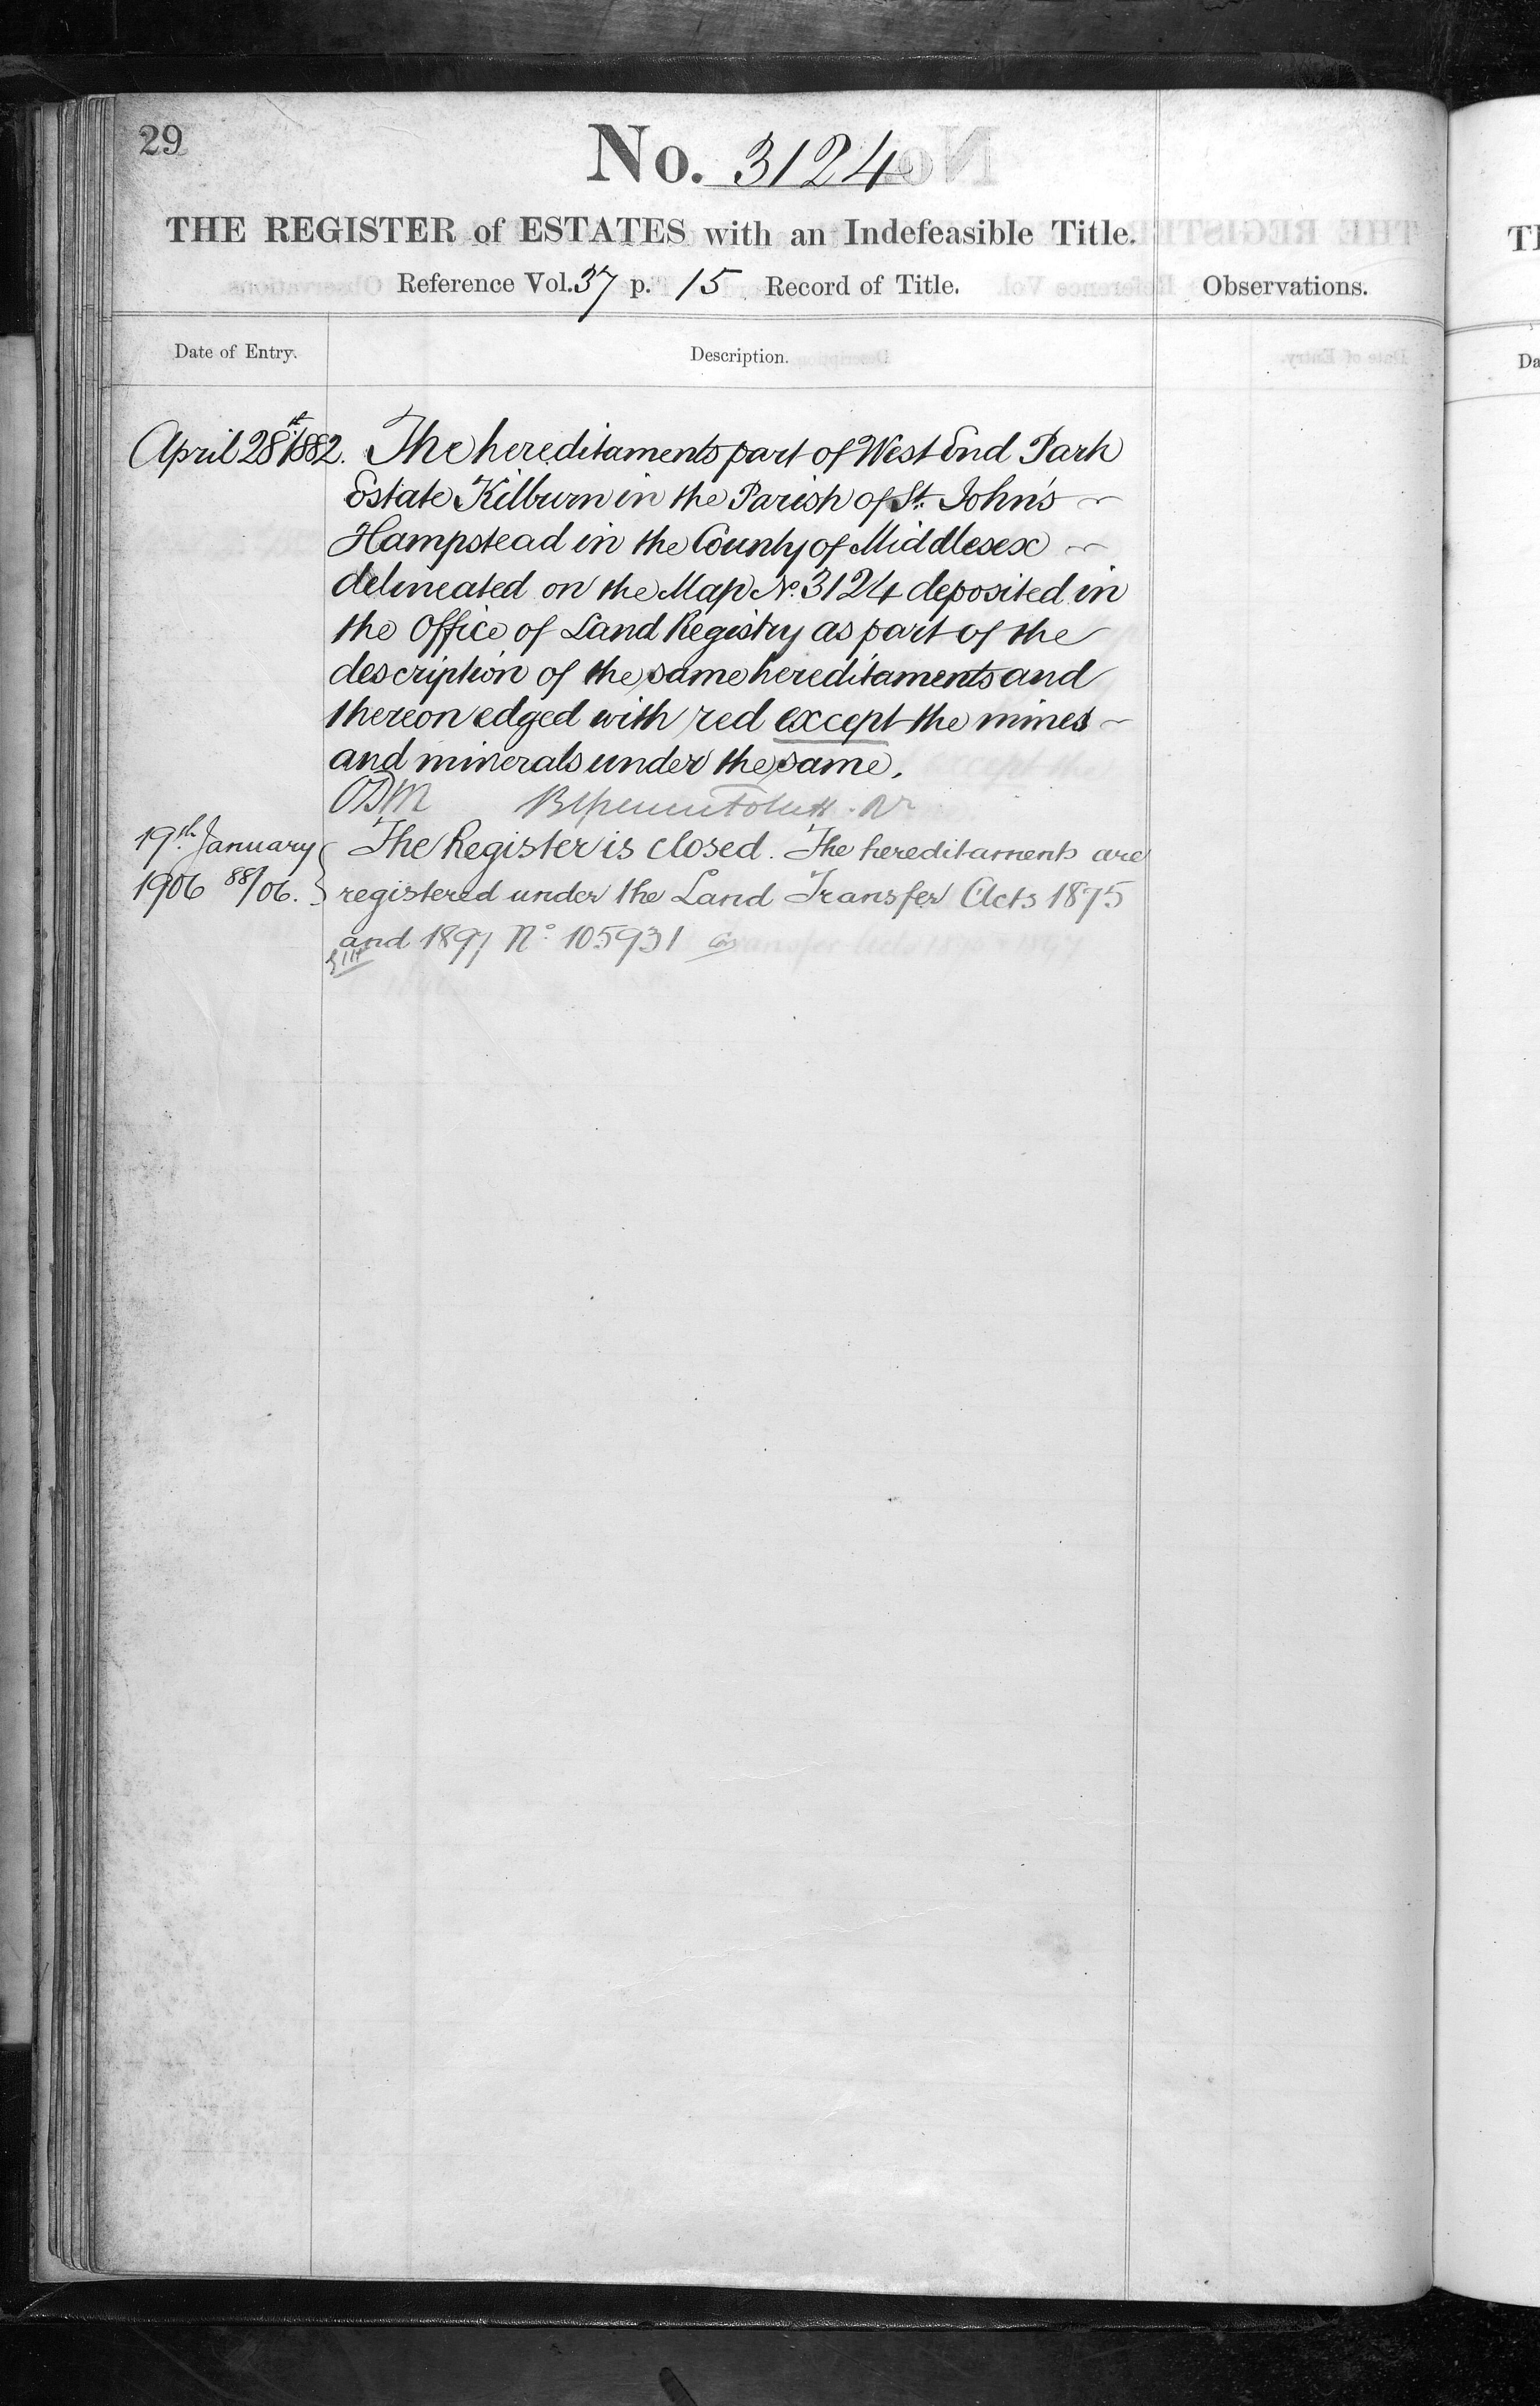 29
No. 3124
THE REGISTER of ESTATES with an Indefeasible Title.
Reference Vol. 37 p. 15 Record of Title.
Observations.
Date of Entry.
Description.
April 28th 1882. The hereditaments part of West End Park
Estate Kilburn in the Parish of St. John's
Hampstead in the County of Middlesex
delineated on the Map No. 3124 deposited in
the Office of Land Registry as part of the
description of the same hereditaments and
thereon edged with red except the mines
and minerals under the same.
19th January The Register is closed. The hereditaments are
1906 88/06. registered under the Land Transfer Acts 1875
and 1897 No 105931